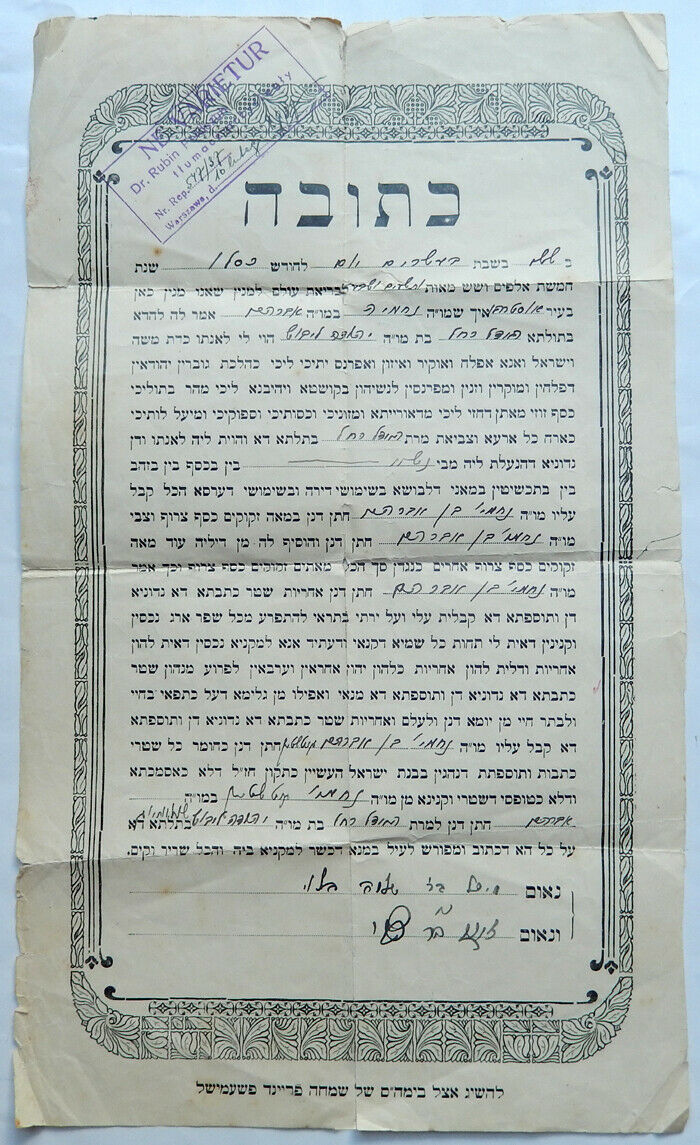 NE VARIETUR
Dr. Rubin
tłumacz
Nr. Rep. 
Warszawa, d.
כתובה
בשבת בעשרים יום לחודש כסלו שנת
חמשת אלפים ושש מאות לבריאת עולם למנין שאנו מנין כאן
בעיר איך שמו״ה נחמיה במו״ה אברהם אמר לה להדא
בתולתא הינדל רחל בת מו״ה יהודה ליבוש הוי לי לאנתו כדת משה
וישראל ואנא אפלח ואוקיר ואיזון ואפרנס יתיכי ליכי כהלכת גוברין יהודאין
דפלחין ומוקרין וזנין ומפרנסין לנשיהון בקושטא ויהיבנא ליכי מהר בתוליכי
כסף זוזי מאתן דחזי ליכי מדאורייתא ומזוניכי וכסותיכי וספוקיכי ומיעל לותיכי
כארח כל ארעא וצביאת מרת הינדל רחל בתלתא דא והוית ליה לאנתו ודן
נדוניא דהנעלת ליה מבי בין בכסף בין בזהב
בין בתכשיטין במאני דלבושא בשימושי דירה ובשימושי דערסא הכל קבל
עליו מו״ה נחמי׳ בן אברהם חתן דנן במאה זקוקים כסף צרוף וצבי
מו״ה נחמי׳ בן אברהם חתן דנן והוסיף לה מן דיליה עוד מאה
זקוקים כסף צרוף אחרים כנגדן סך הכל מאתים זקוקים כסף צרוף וכך אמר
מו״ה נחמי׳ בן אברהם חתן דנן אחריות שטר כתבתא דא נדוניא
דן ותוספתא דא קבלית עלי ועל ירתי בתראי להתפרע מכל שפר ארג נכסין
וקנינין דאית לי תחות כל שמיא דקנאי ודעתיד אנא למקניא נכסין דאית להון
אחריות ודלית להון אחריות כלהון יהון אחראין וערבאין לפרוע מנהון שטר
כתבתא דא נדוניא דן ותוספתא דא מנאי ואפילו מן גלימא דעל כתפאי בחיי
ולבתר חיי מן יומא דנן ולעלם ואחריות שטר כתבתא דא נדוניא דן ותוספתא
דא קבל עליו מו״ה נחמי׳ בן אברהם חתן דנן כחומר כל שטרי
כתבות ותוספתת דנהגין בבנת ישראל העשיין כתקון חז״ל דלא כאסמכתא
ודלא כטופסי דשטרי וקנינא מן מו״ה נחמי׳ במו״ה
אברהם חתן דנן למרת הינדל רחל בת מו״ה יהודה ליבוש בתלתא דא
על כל הא דכתוב ומפורש לעיל במנא דכשר למקניא ביה והכל שריר וקים.
נאום
ונאום
להשיג אצל בימה״ס של שמחה פריינד פשעמישל